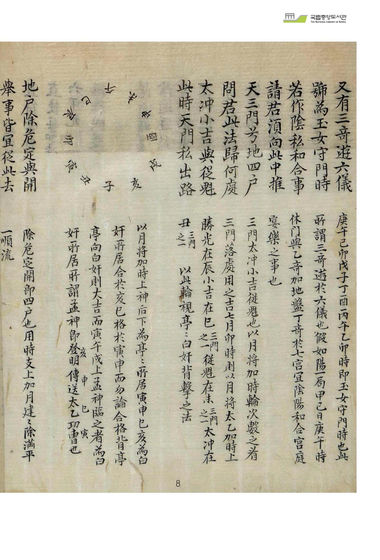 국립중앙도서관
又有三奇遊六儀
號為玉女守門時
若作陰私和合事
請君須向此中推
天三門兮地四戶
問君此法歸何處
太冲小吉與從魁
此時天門私出路
庚午己卯戊子丁酉丙午乙卯時即玉女守門時也此
所謂三奇遊於六儀也假如陽一局甲己日庚午時
休門與乙奇加地盤丁奇於七宮宜陰陽和合宮庭
宴樂之事也
三門太冲小吉從魁也以月將加時輪次數之看
三門落處用之吉七月卯時則以月將太乙加時上
勝光在辰小吉在巳三門之一從魁在未三門之二太冲在
丑三門之三 以 輪視亭亭白奸背擊之法
以月將加時上神后下為亭亭所居寅申巳亥為白
奸所居合於亥巳格於寅申而勿論合格背亭
亭向白奸則大吉而寅午戌上孟神臨之者為白
奸所居所謂孟神即登明亥傳送申太乙巳功曹寅也
地戶除危定與開
舉事皆宜從此去
除危定開即四戶也用時支上加月建建除滿平
一順流
8